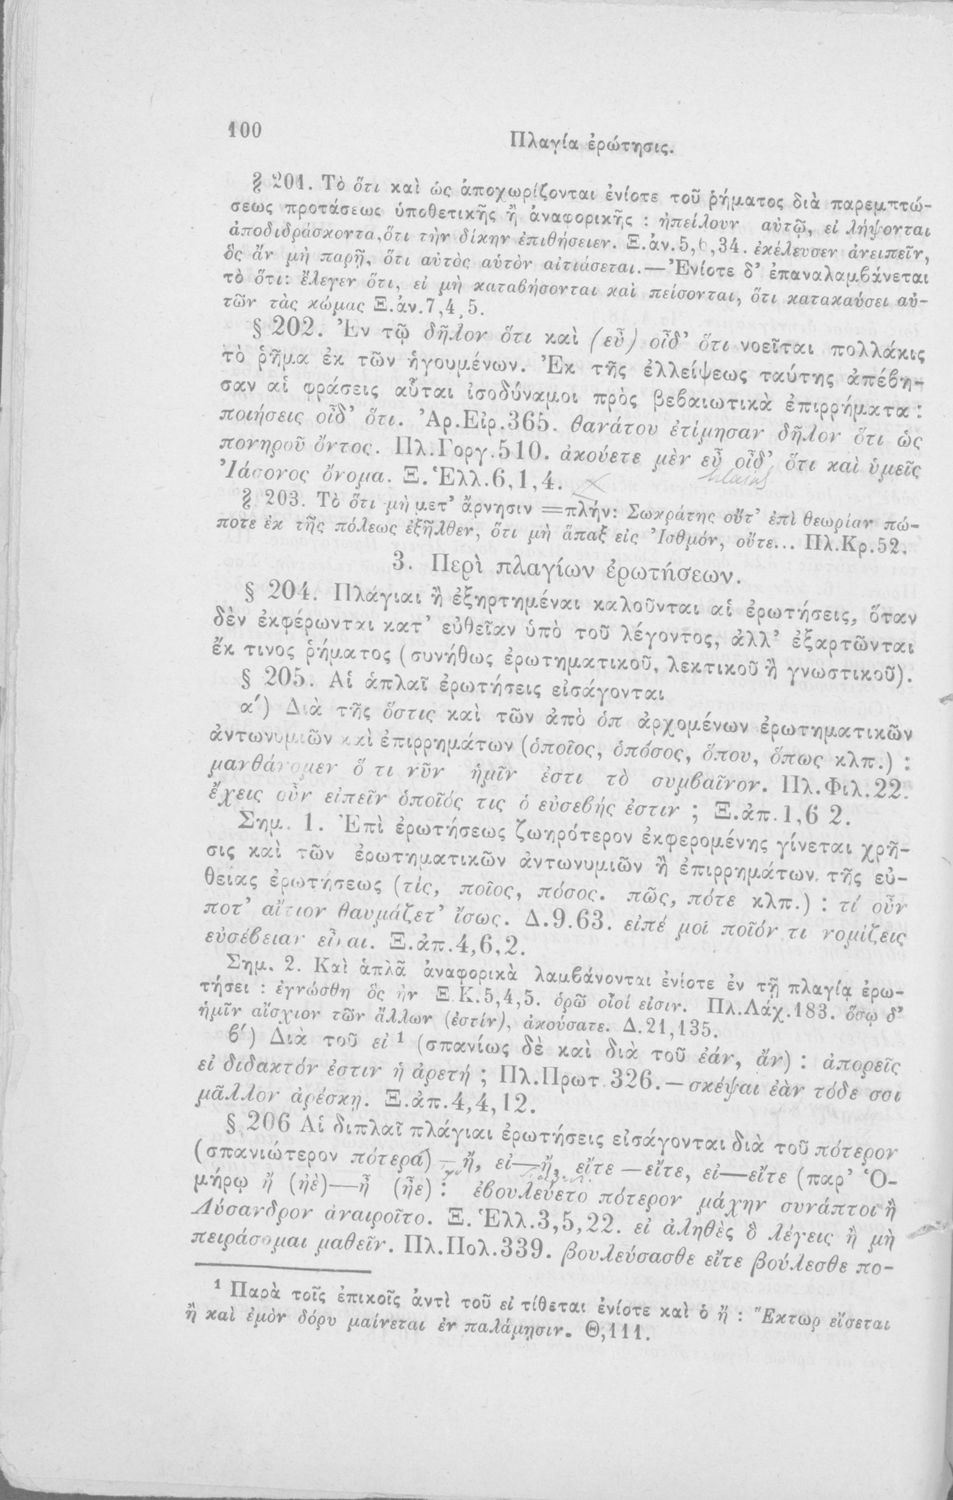 100
Πλαγία ἐρώτησις.
§ 201. Τὸ ὅτι καὶ ὡς ἀποχωρίζονται ἐνίοτε τοῦ ῥήματος διὰ παρεμπτώ-
σεως προτάσεως ὑποθετικῆς ἢ ἀναφορικῆς : ἠπείλουν αὐτῷ, εἰ λήψονται
ἀποδιδράσκοντα, ὅτι τὴν δίκην ἐπιθήσειεν. Ξ.ἀν.5,6,34. ἐκέλευσεν ἀνειπεῖν,
ὃς ἂν μὴ παρῇ, ὅτι αὐτὸς αὑτὸν αἰτιάσεται.—Ἐνίοτε δ' ἐπαναλαμβάνεται
τὸ ὅτι: ἔλεγεν ὅτι, εἰ μὴ καταβήσονται καὶ πείσονται, ὅτι κατακαύσει αὐ-
τῶν τὰς κώμας Ξ.ἀν.7,4,5.
§ 202. Ἐν τῷ δῆλον ὅτι καὶ (εὖ) οἶδ' ὅτι νοεῖται πολλάκις
τὸ ῥῆμα ἐκ τῶν ἡγουμένων. Ἐκ τῆς ἐλλείψεως ταύτης ἀπέβη-
σαν αἱ φράσεις αὗται ἰσοδύναμοι πρὸς βεβαιωτικὰ ἐπιρρήματα :
ποιήσεις οἶδ' ὅτι. Ἀρ.Εἰρ.365. θανάτου ἐτίμησαν δῆλον ὅτι ὡς
πονηροῦ ὄντος. Πλ.Γοργ.510. ἀκούετε μὲν εὖ οἶδ' ὅτι καὶ ὑμεῖς
Ἰάσονος ὄνομα. Ξ.Ἑλλ.6,1,4.
§ 203. Τὸ ὅτι μὴ μετ' ἄρνησιν =πλήν: Σωκράτης οὔτ' ἐπὶ θεωρίαν πώ-
ποτε ἐκ τῆς πόλεως ἐξῆλθεν, ὅτι μὴ ἅπαξ εἰς Ἰσθμόν, οὔτε... Πλ.Κρ.52.
3. Περὶ πλαγίων ἐρωτήσεων.
§ 204. Πλάγιαι ἢ ἐξηρτημέναι καλοῦνται αἱ ἐρωτήσεις, ὅταν
δὲν ἐκφέρωνται κατ' εὐθεῖαν ὑπὸ τοῦ λέγοντος, ἀλλ' ἐξαρτῶνται
ἔκ τινος ῥήματος (συνήθως ἐρωτηματικοῦ, λεκτικοῦ ἢ γνωστικοῦ).
§ 205. Αἱ ἁπλαῖ ἐρωτήσεις εἰσάγονται
α΄) Διὰ τῆς ὅστις καὶ τῶν ἀπὸ ὁπ ἀρχομένων ἐρωτηματικῶν
ἀντωνυμιῶν καὶ ἐπιρρημάτων (ὁποῖος, ὁπόσος, ὅπου, ὅπως κλπ.) :
μανθάνομεν ὅ τι νῦν ἡμῖν ἐστι τὸ συμβαῖνον. Πλ.Φιλ.22.
ἔχεις οὖν εἰπεῖν ὁποῖός τις ὁ εὐσεβής ἐστιν ; Ξ.ἀπ.1,6 2.
Σημ. 1. Ἐπὶ ἐρωτήσεως ζωηρότερον ἐκφερομένης γίνεται χρῆ-
σις καὶ τῶν ἐρωτηματικῶν ἀντωνυμιῶν ἢ ἐπιρρημάτων. τῆς εὐ-
θείας ἐρωτήσεως (τίς, ποῖος, πόσος. πῶς, πότε κλπ.) : τί οὖν
ποτ' αἴτιον θαυμάζετ' ἴσως. Δ.9.63. εἰπέ μοι ποῖόν τι νομίζεις
εὐσέβειαν εἶναι. Ξ.ἀπ.4,6,2.
Σημ. 2. Καὶ ἁπλᾶ ἀναφορικὰ λαμβάνονται ἐνίοτε ἐν τῇ πλαγίᾳ ἐρω-
τήσει : ἐγνώσθη ὃς ἦν Ξ.Κ.5,4,5. ὁρῶ οἷοί εἰσιν. Πλ.Λάχ.183. ὅσῳ δ'
ἡμῖν αἴσχιον τῶν ἄλλων (ἐστίν), ἀκούσατε. Δ.21,135.
β΄) Διὰ τοῦ εἰ ¹ (σπανίως δὲ καὶ διὰ τοῦ ἐάν, ἄν) : ἀπορεῖς
εἰ διδακτόν ἐστιν ἡ ἀρετή ; Πλ.Πρωτ.326.—σκέψαι ἐὰν τόδε σοι
μᾶλλον ἀρέσκῃ. Ξ.ἀπ.4,4,12.
§ 206 Αἱ διπλαῖ πλάγιαι ἐρωτήσεις εἰσάγονται διὰ τοῦ πότερον
(σπανιώτερον πότερα)—ἤ, εἰ—ἤ, εἴτε—εἴτε, εἰ—εἴτε (παρ' Ὁ-
μήρῳ ἢ (ἠὲ)—ἦ (ἦε) : ἐβουλεύετο πότερον μάχην συνάπτοι ἢ
Λύσανδρον ἀναιροῖτο. Ξ.Ἑλλ.3,5,22. εἰ ἀληθὲς ὃ λέγεις ἢ μὴ
πειράσομαι μαθεῖν. Πλ.Πολ.339. βουλεύσασθε εἴτε βούλεσθε πο-
¹ Παρὰ τοῖς ἐπικοῖς ἀντὶ τοῦ εἰ τίθεται ἐνίοτε καὶ ὁ ἤ : Ἕκτωρ εἴσεται
ἢ καὶ ἐμὸν δόρυ μαίνεται ἐν παλάμῃσιν. Θ,111.